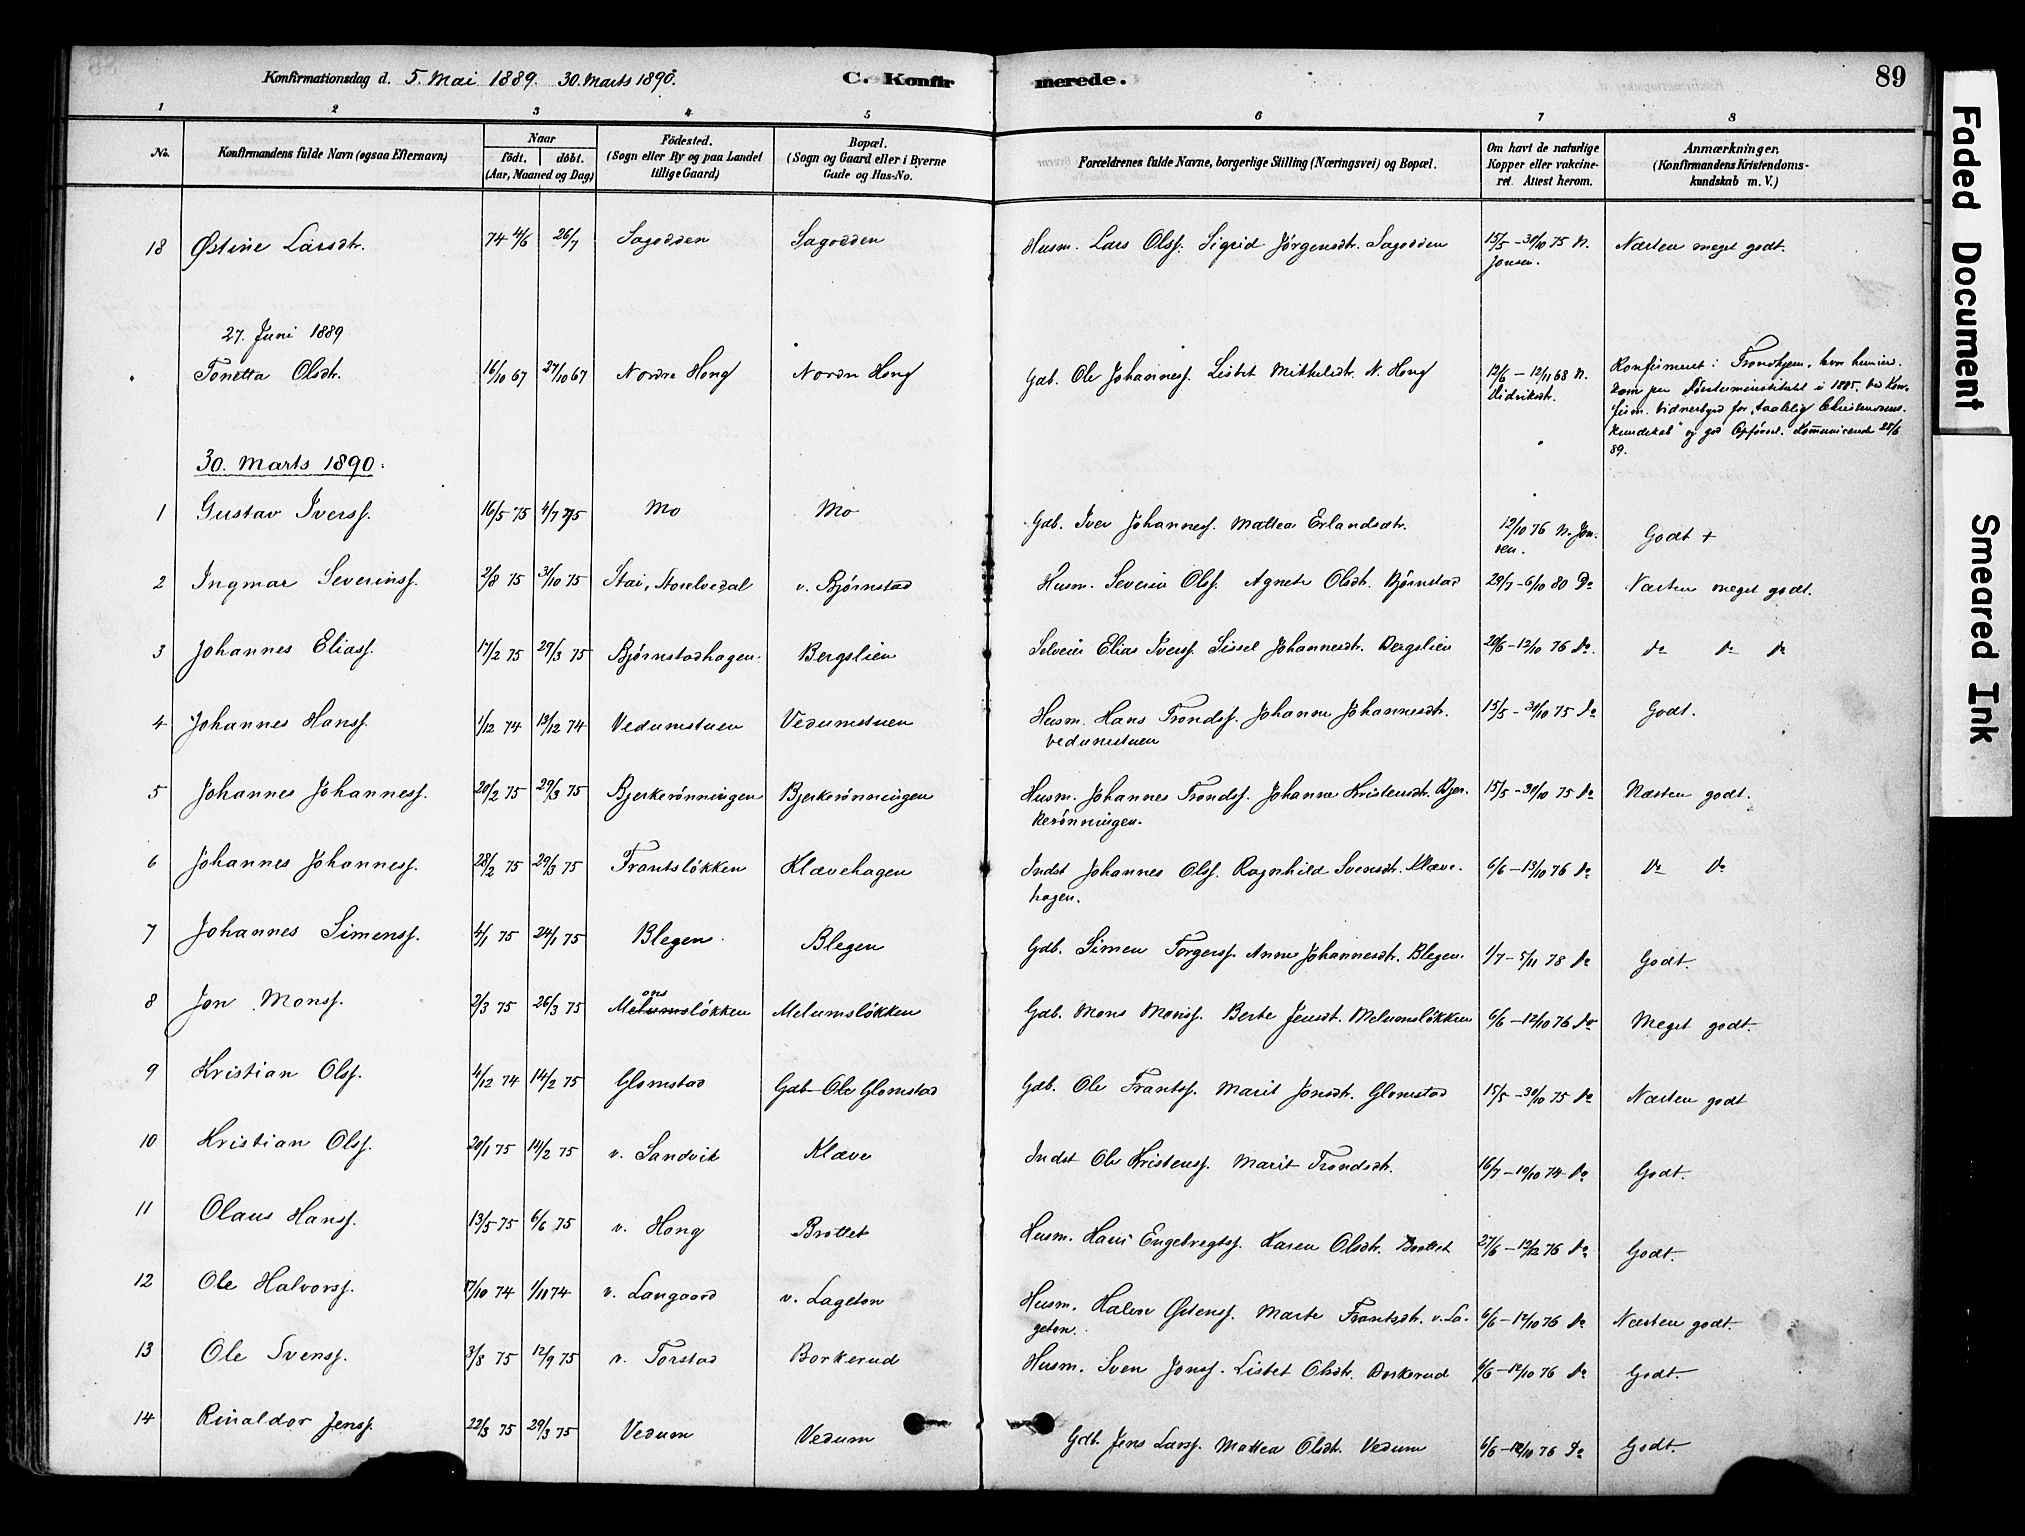 Konfirmationsdag d. 5. Mai 1889. 30. Marts 1890. C. Konfirmerede. 89
1 2 3 4 5 6 7 8
No. Konfirmandens fulde Navn (ogsaa Efternavn) Naar födt. döbt. (Aar, Maaned og Dag) Födested. (Sogn eller By og paa Landet tillige Gaard) Bopæl. (Sogn og Gaard eller i Byerne Gade og Hus-No. Forældrenes fulde Navne, borgerlige Stilling (Næringsvei) og Bopæl. Om havt de naturlige Kopper eller vakcineret. Attest herom. Anmærkninger. (Konfirmandens Kristendomskundskab m. V.)
18 Østine Larsdtr. 74 4/6 26/7 Sagodden Sagodden Husm. Lars Olss. Sigrid Jørgensdtr. Sagodden 15/5 - 30/10 75 N. Jonsen. Næsten meget godt.
27. Juni 1889
Tonetta Olsdtr. 16/10 67 27/10 67 Nordre Hong Nordre Hong Gdb. Ole Johanness. Lisbet Mikkelsdtr. N. Hong 12/6 - 12/11 68 N. Didriksdtr. Konfirmeret i Trondhjem, hvor hun
i 1885.
for "taalelig Christendomskundskab" og god Opførsel.
89.
30. Marts 1890.
1 Gustav Iverss. 16/5 75 4/7 75 Mo Mo Gdb. Iver Johanness. Mattea Erlandsdtr. 12/10 76 N. Jonsen. Godt +
2 Ingmar Severinss. 2/8 75 31/10 75 Stai, Storelvedal v. Bjørnstad Husm. Severin Olss. Agnete Olsdtr. Bjørnstad 29/7 - 6/10 80 Do Næsten meget godt.
3 Johannes Eliass. 17/2 75 29/3 75 Bjørnstadhagen. Bergslien Selveier Elias Iverss. Sissel Johannesdtr. Bergslien 20/6 - 12/10 76 do. do do do
4 Johannes Hanss. 1/12 74 13/12 74 Vedumstuen Vedumstuen Husm. Hans Tronds. Johanne Johannesdtr. 15/5 - 30/10 75 do Godt.
Vedumstuen
5 Johannes Johanness. 20/2 75 29/3 75 Bjerkerønningen Bjerkerønningen Husm. Johannes Tronds. Johanne Kristensdtr. Bjer- 15/5 - 30/10 75 do Næsten godt.
kerønningen.
6 Johannes Johanness. 28/2 75 29/3 75 Frantsløkken Klævehagen Indst Johannes Olss. Ragnhild Svensdtr. Klæve- 6/6 - 13/10 76 do do do
hagen.
7 Johannes Simenss. 4/1 75 24/1 75 Blegen Blegen Gdb. Simen Torgerss. Anne Johannesdtr. Blegen. 1/7 - 5/11 78 do Godt.
8 Jon Monss. 2/3 75 26/3 75 Melumsløkken ons Melumsløkken Gdb. Mons Monss. Berte Jensdt. Melumsløkken 6/6 - 12/10 76 do Meget godt.
9 Kristian Olss. 4/12 74 14/2 75 Glomstad Gdb Ole Glomstad Gdb. Ole Frantss. Marit Jonsdtr. Glomstad 15/5 - 30/10 75 do Næsten godt
10 Kristian Olss. 20/1 75 14/2 75 v. Sandvik Klæve Indst Ole Kristenss. Marit Trondsdtr. 16/7 - 10/10 74 do Godt.
11 Olaus Hanss. 13/5 75 6/6 75 v. Hong Brottet Husm. Hans Engebregtss. Karen Olsdtr. Brottet 27/6 - 12/12 76 do Godt.
12 Ole Halvorss. 17/10 74 1/11 74 v. Langaard v. Lageton Husm. Halvor Østenss. Marte Frantsdtr. v. La- 6/6 - 12/10 76 do Næsten godt.
geton.
13 Ole Svenss. 3/8 75 12/9 75 v. Torstad Borkerud Husm. Sven Jonss. Lisbet Olsdtr. Borkerud 6/6 - 12/10 76 do Godt.
14 Rinaldor Jenss. 22/3 75 29/3 75 Vedum Vedum Gdb. Jens Larss. Mattea Olsdtr. Vedum 6/6 - 12/10 76 do Godt.
Faded Document
Smeared Ink